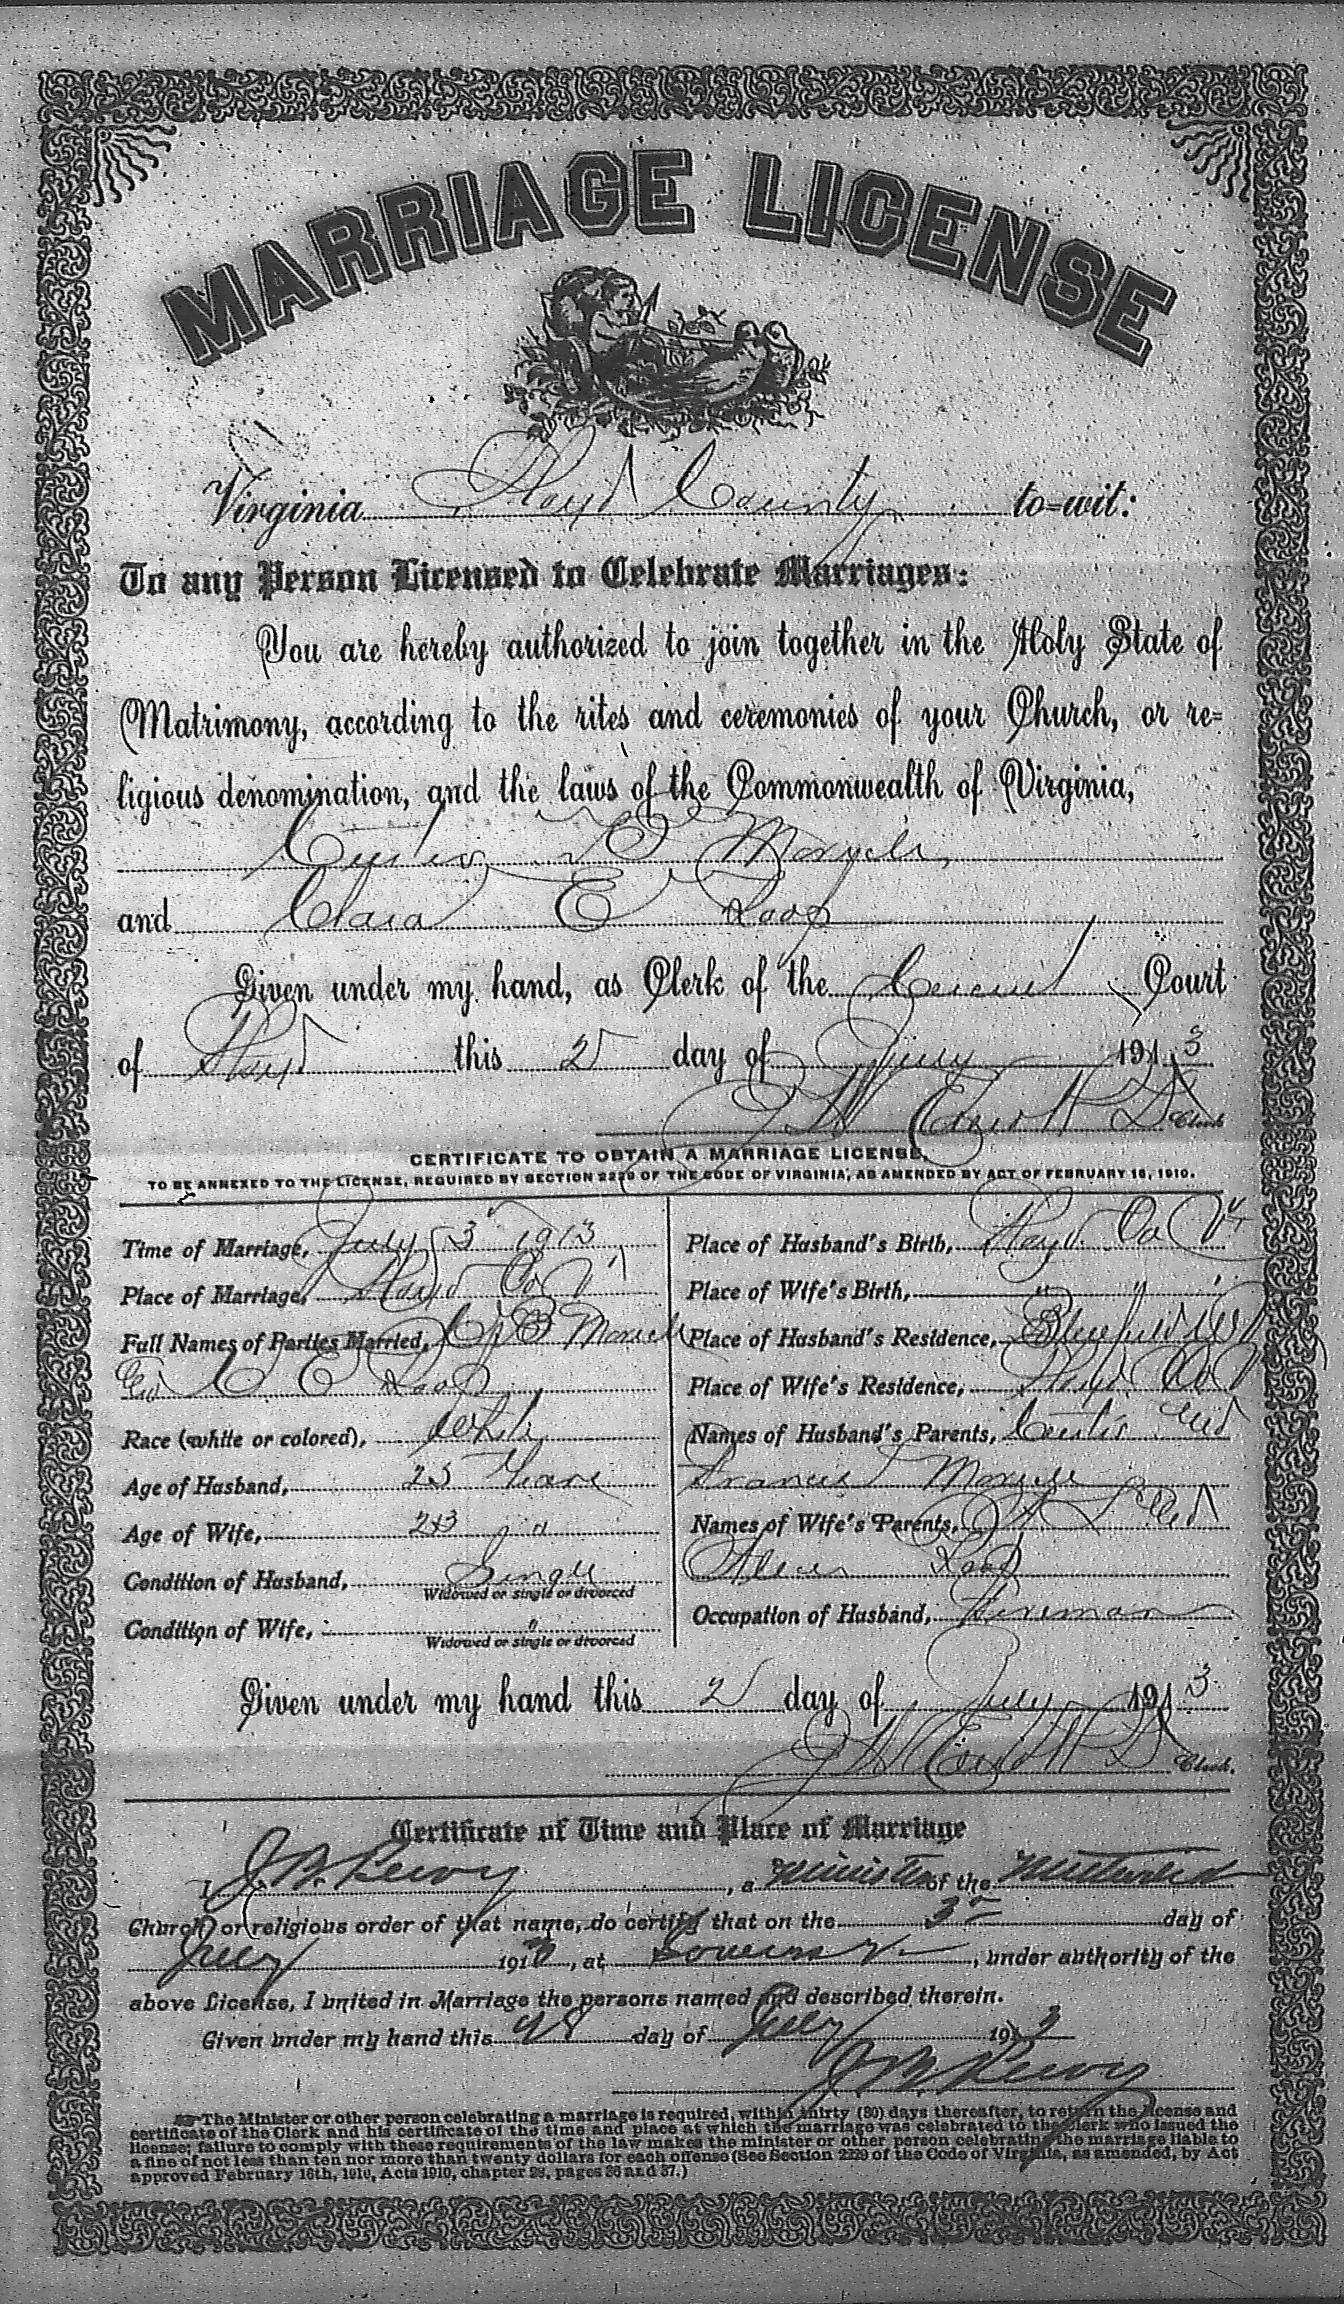 MARRIAGE LICENSE
Virginia Floyd County to=wit:
To any Person Licensed to Celebrate Marriages:
You are hereby authorized to join together in the Holy State of
Matrimony, according to the rites and ceremonies of your Church, or re=
ligious denomination, and the laws of the Commonwealth of Virginia,
and Clara E Loop
Given under my hand, as Clerk of the Circuit Court
of Floyd this 2 day of July 1913
Clerk
CERTIFICATE TO OBTAIN A MARRIAGE LICENSE,
TO BE ANNEXED TO THE LICENSE, REQUIRED BY SECTION 2229 OF THE CODE OF VIRGINIA, AS AMENDED BY ACT OF FEBRUARY 16, 1910.
Time of Marriage, July 3 1913
Place of Marriage, Floyd Co V
Full Names of Parties Married,
C E Loop
Race (white or colored), White
Age of Husband, 23 Years
Age of Wife, 23 "
Condition of Husband, Single
Widowed or single or divorced
Condition of Wife, "
Widowed or single or divorced
Place of Husband's Birth, Floyd Co Va
Place of Wife's Birth, " " "
Place of Husband's Residence, Bluefield W V
Place of Wife's Residence, Floyd Co V
Names of Husband's Parents, and
Names of Wife's Parents, and
Loop
Occupation of Husband, Fireman
Given under my hand this 2 day of July 1913
Clerk.
Certificate of Time and Place of Marriage
I J. B. , a Minister of the
Church, or religious order of that name, do certify that on the 3rd day of
July 1913, at Sowers Va, under authority of the
above License, I united in Marriage the persons named and described therein.
Given under my hand this day of July 1913
The Minister or other person celebrating a marriage is required, within thirty (30) days thereafter, to return the license and
certificate of the Clerk and his certificate of the time and place at which the marriage was celebrated to the Clerk who issued the
license; failure to comply with these requirements of the law makes the minister or other person celebrating the marriage liable to
a fine of not less than ten nor more than twenty dollars for each offense (See Section 2229 of the Code of Virginia, as amended, by Act
approved February 16th, 1910, Acts 1910, chapter 28, pages 36 and 37.)